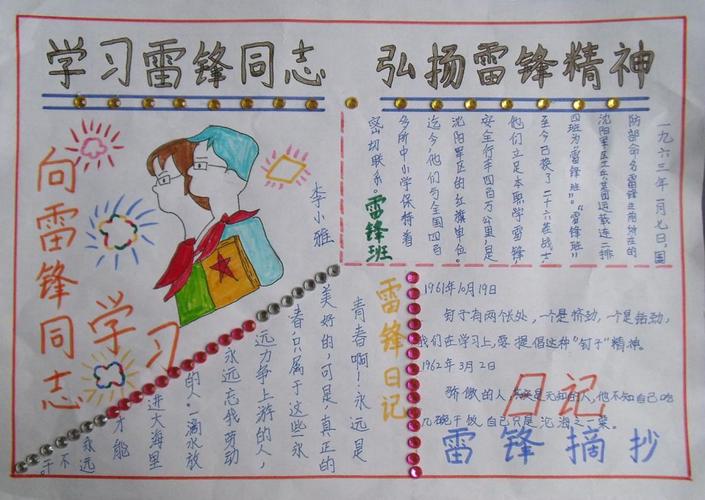 学习雷锋同志
弘扬雷锋精神
向雷锋同志
学习
李小雅
一九六三年一月七日,国
防部命名雷锋生前所在的
沈阳军区工兵某团运载连二排
四班为"雷锋班"。"雷锋班"
至今已换了二十六茬战士
他们立足本职学雷锋
安全行车四百万公里,是
沈阳军区的红旗单位。
迄今,他们与全国四百
多所中小学保持着
密切联系。
雷锋班
青春啊!永远是
美好的,可是,真正的
春只属于这些永
远力争上游的人,
永远忘我劳动
的人。一滴水放
进大海里
才能
永远
不
干。
雷锋日记
1961年10月19日
钉子有两个长处,一个是挤劲,一个是钻劲,
我们在学习上,要提倡这种"钉子"精神。
1962年3月2日
骄傲的人,其实是无知的人,他不知自己吃
几碗干饭,自己只是沧海之一粟。
日记
雷锋摘抄